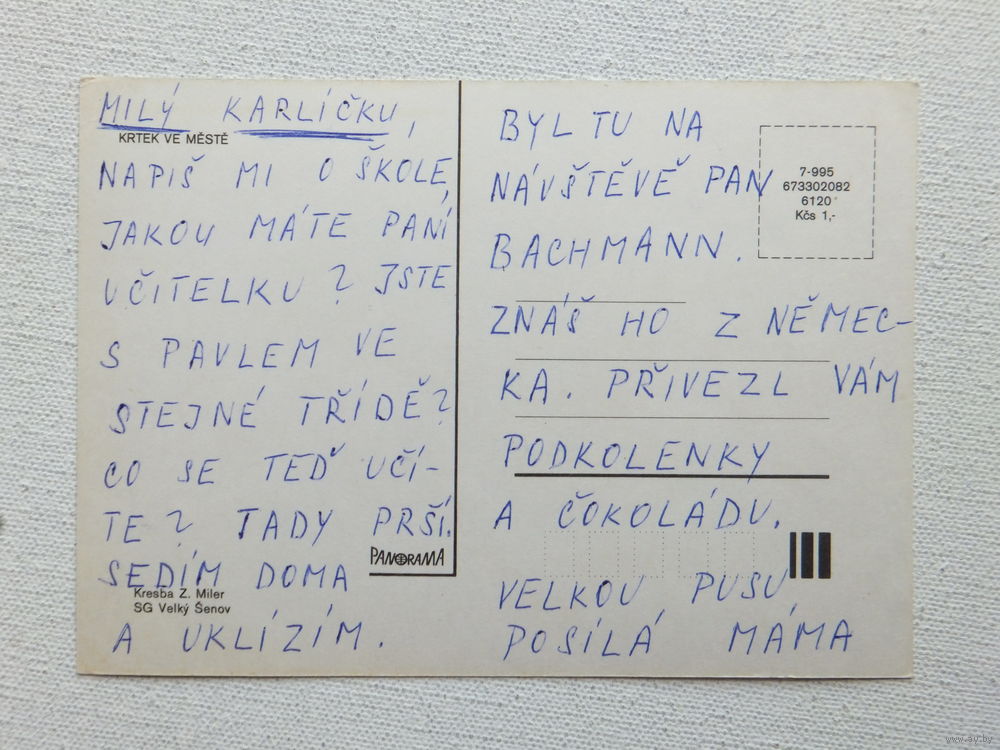 MILÝ KARLÍČKU,
KRTEK VE MĚSTĚ
NAPIŠ MI O ŠKOLE,
JAKOU MÁTE PANÍ
UČITELKU? JSTE
S PAVLEM VE
STEJNÉ TŘÍDĚ?
CO SE TEĎ UČÍ-
TE? TADY PRŠÍ.
PANORAMA
SEDÍM DOMA
Kresba Z. Miler
SG Velký Šenov
A UKLÍZÍM.
BYL TU NA
NÁVŠTĚVĚ PAN
BACHMANN.
7-995
673302082
6120
Kčs 1,-
ZNÁŠ HO Z NĚMEC-
KA. PŘIVEZL VÁM
PODKOLENKY
A ČOKOLÁDU.
VELKOU PUSU
POSÍLÁ MÁMA
www.ay.by